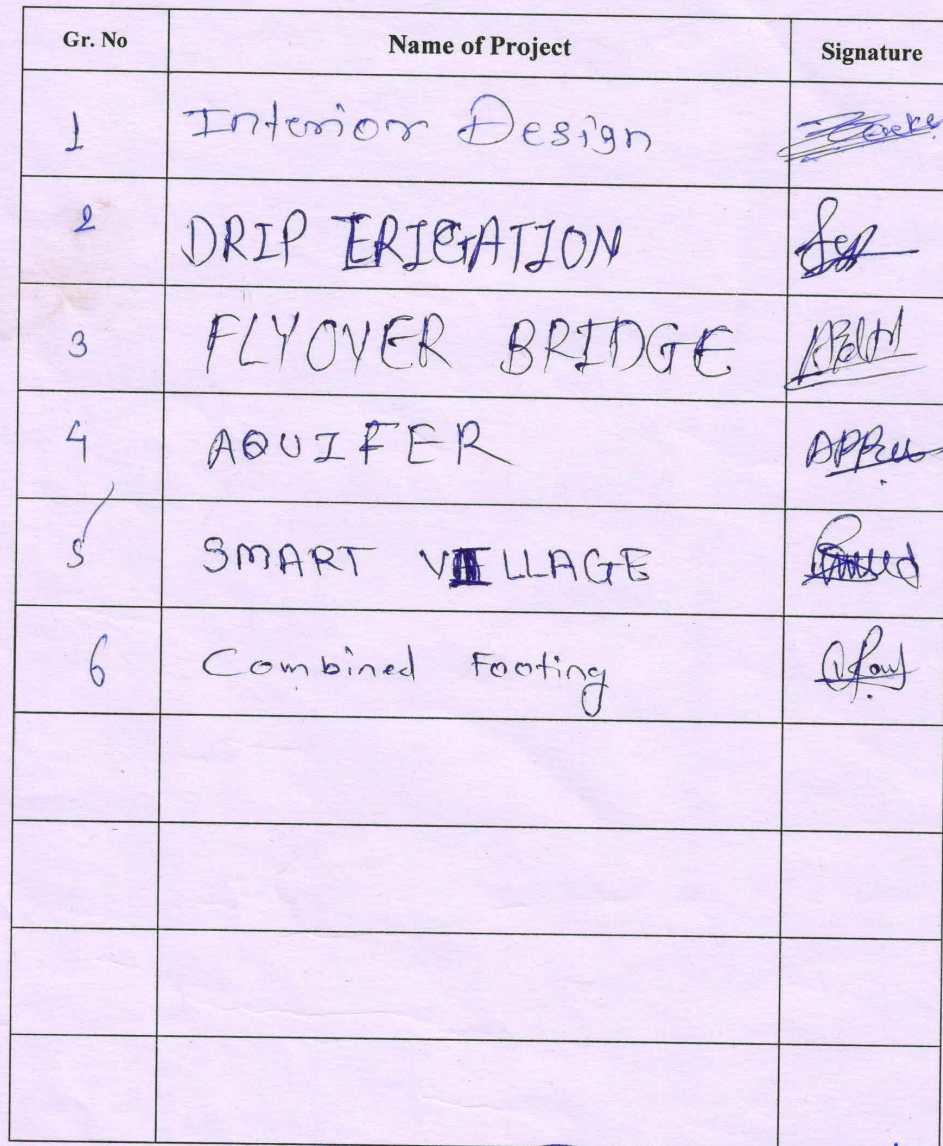 Gr. No Name of Project Signature
1 Interior Design
2 DRIP ERIGATION
3 FLYOVER BRIDGE
4 AQUIFER
5 SMART VILLAGE
6 Combined Footing